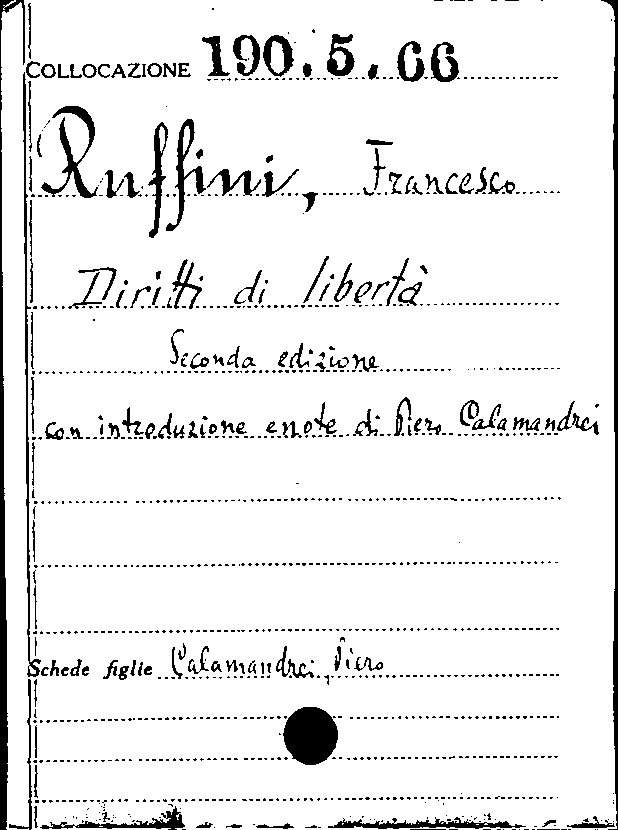 COLLOCAZIONE 190.5.66
Ruffini, Francesco
Diritti di libertà
Seconda edizione
con introduzione e note di Piero Calamandrei
Schede figlie Calamandrei, Piero